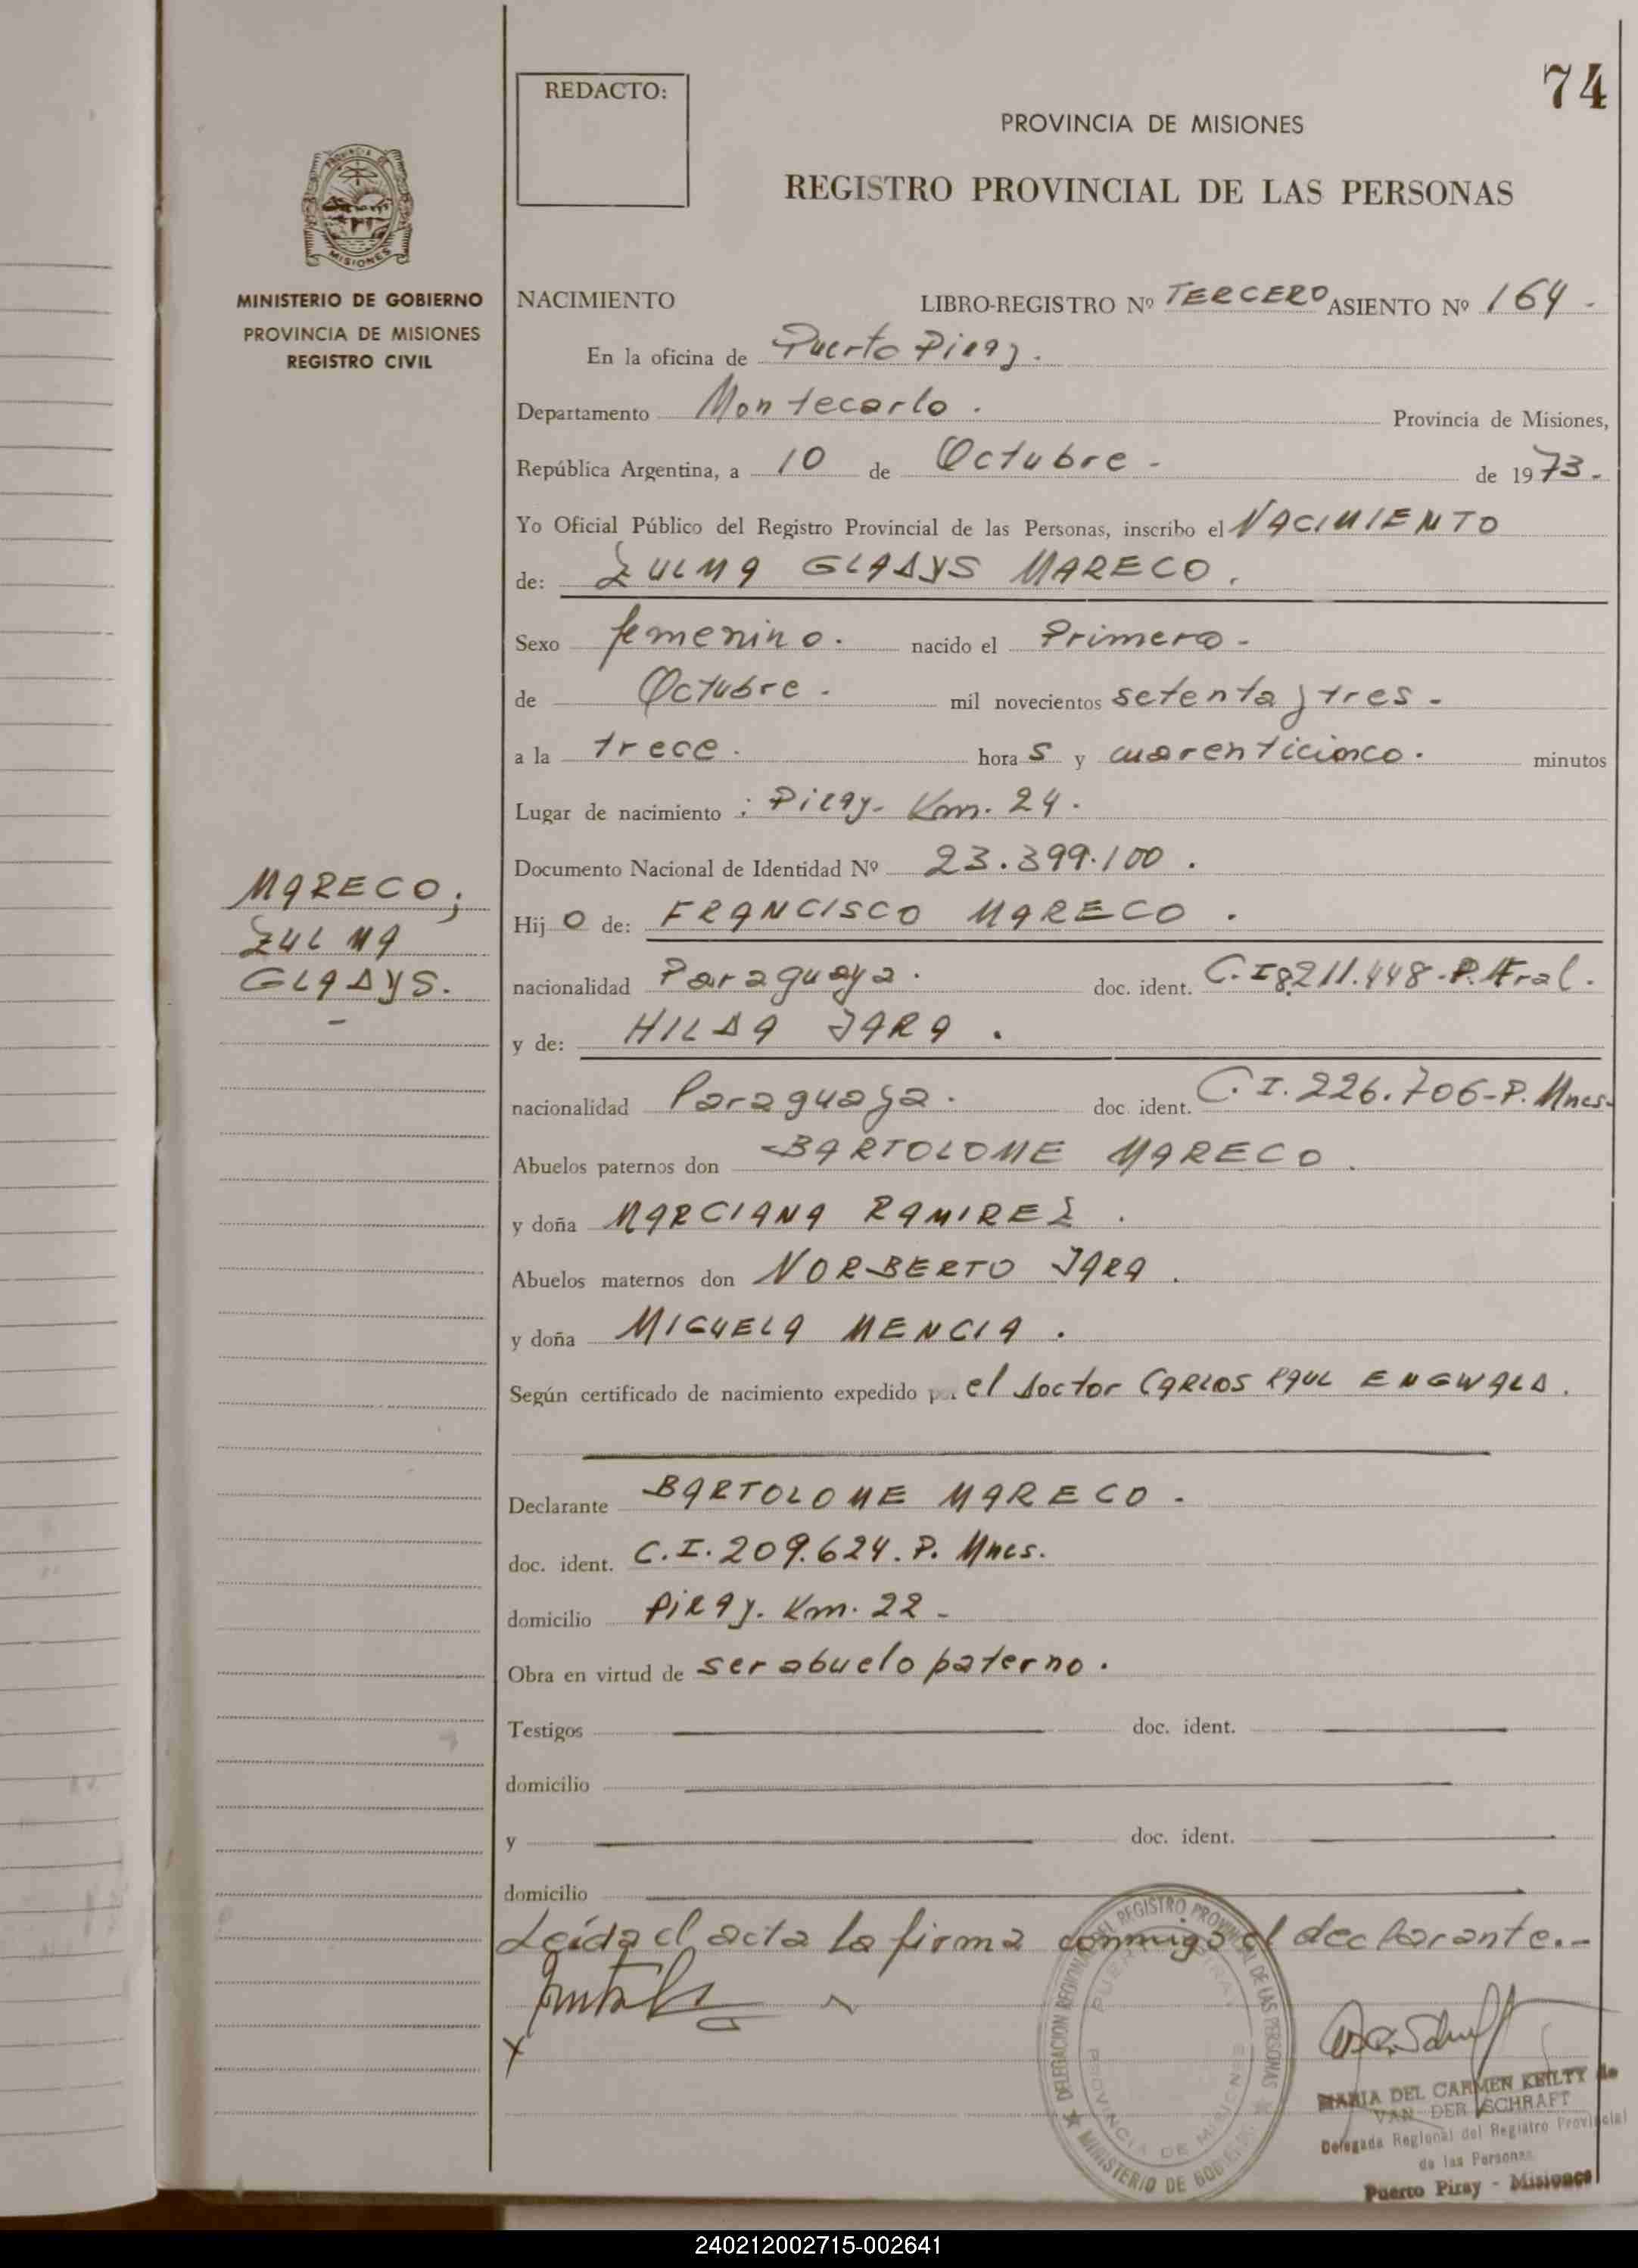 74
REDACTO:
PROVINCIA DE MISIONES
REGISTRO PROVINCIAL DE LAS PERSONAS
PROVINCIA DE
MISIONES
MINISTERIO DE GOBIERNO
PROVINCIA DE MISIONES
REGISTRO CIVIL
NACIMIENTO LIBRO-REGISTRO Nº TERCERO ASIENTO Nº 164.
En la oficina de Puerto Piray.
Departamento Montecarlo. Provincia de Misiones,
República Argentina, a 10 de Octubre - de 1973.
Yo Oficial Público del Registro Provincial de las Personas, inscribo el NACIMIENTO
de: ZULMA GLADYS MARECO.
Sexo femenino. nacido el Primero -
de Octubre. mil novecientos setenta y tres -
a la trece. horas y cuarenticinco. minutos
Lugar de nacimiento : Piray. Km. 24.
Documento Nacional de Identidad Nº 23.399.100.
MARECO;
ZULMA
GLADYS.
Hijo de: FRANCISCO MARECO.
nacionalidad Paraguaya. doc. ident. C.I 8.211.448-P.
y de: HILDA JARA.
nacionalidad Paraguaya. doc. ident. C.I. 226.706-P. Mnes.
Abuelos paternos don BARTOLOME MARECO.
y doña MARCIANA RAMIREZ.
Abuelos maternos don NORBERTO JARA.
y doña MIGUELA MENCIA.
Según certificado de nacimiento expedido por el doctor CARLOS RAUL ENGWALD.
Declarante BARTOLOME MARECO.
doc. ident. C.I. 209.624. P. Mnes.
domicilio Piray. Km. 22 -
Obra en virtud de ser abuelo paterno.
Testigos doc. ident.
domicilio
y doc. ident.
domicilio
Leída el acta la firma conmigo el declarante.-
DELEGACION REGIONAL DEL REGISTRO PROVINCIAL DE LAS PERSONAS
PUERTO PIRAY
PROVINCIA DE MISIONES
MINISTERIO DE GOBIERNO
MARIA DEL CARMEN KEILTY de
VAN DER SCHRAFT
Delegada Regional del Registro Provincial
de las Personas
Puerto Piray - Misiones
240212002715-002641